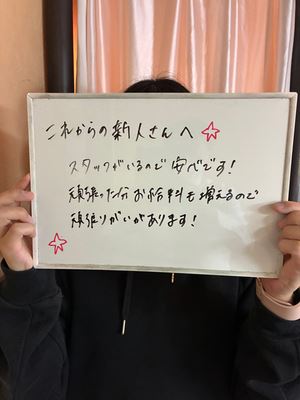 これからの新人さんへ
スタッフがいるので安心です！
頑張った分お給料も増えるので
頑張りがいがあります！